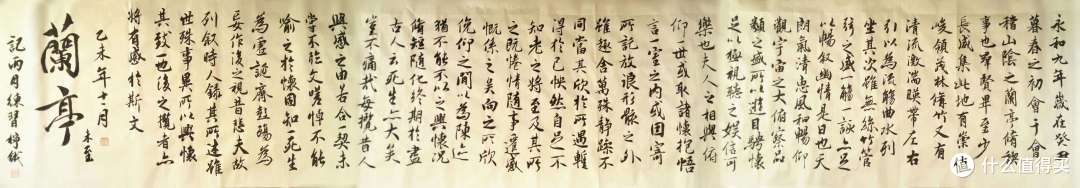 永和九年歲在癸丑
暮春之初會于會
稽山陰之蘭亭脩稧
事也羣賢畢至少
長咸集此地有崇
峻領茂林脩竹又有
清流激湍暎帶左右
引以為流觴曲水列
坐其次雖無絲竹管
弦之盛一觴一詠亦足
以暢叙幽情是日也天
朗氣清惠風和暢仰
觀宇宙之大俯察品
類之盛所以遊目騁懷
足以極視聽之娱信可
樂也夫人之相與俯
仰一世或取諸懷抱悟
言一室之内或因寄
所託放浪形骸之外
雖趣舍萬殊静躁不
同當其欣於所遇蹔
得於己怏然自足不
知老之將至及其所
之既惓情隨事遷感
慨係之矣向之所欣
俛仰之間以為陳迹
猶不能不以之興懷況
脩短隨化終期於盡
古人云死生亦大矣
豈不痛哉每攬昔人
興感之由若合一契未
甞不臨文嗟悼不能
喻之於懷固知一死生
為虛誕齊彭殤為
妄作後之視昔悲夫故
列叙時人錄其所述雖
世殊事異所以興懷
其致一也後之攬者亦
將有感於斯文
乙未年十一月
蘭亭
記兩月練習
值 什么值得买